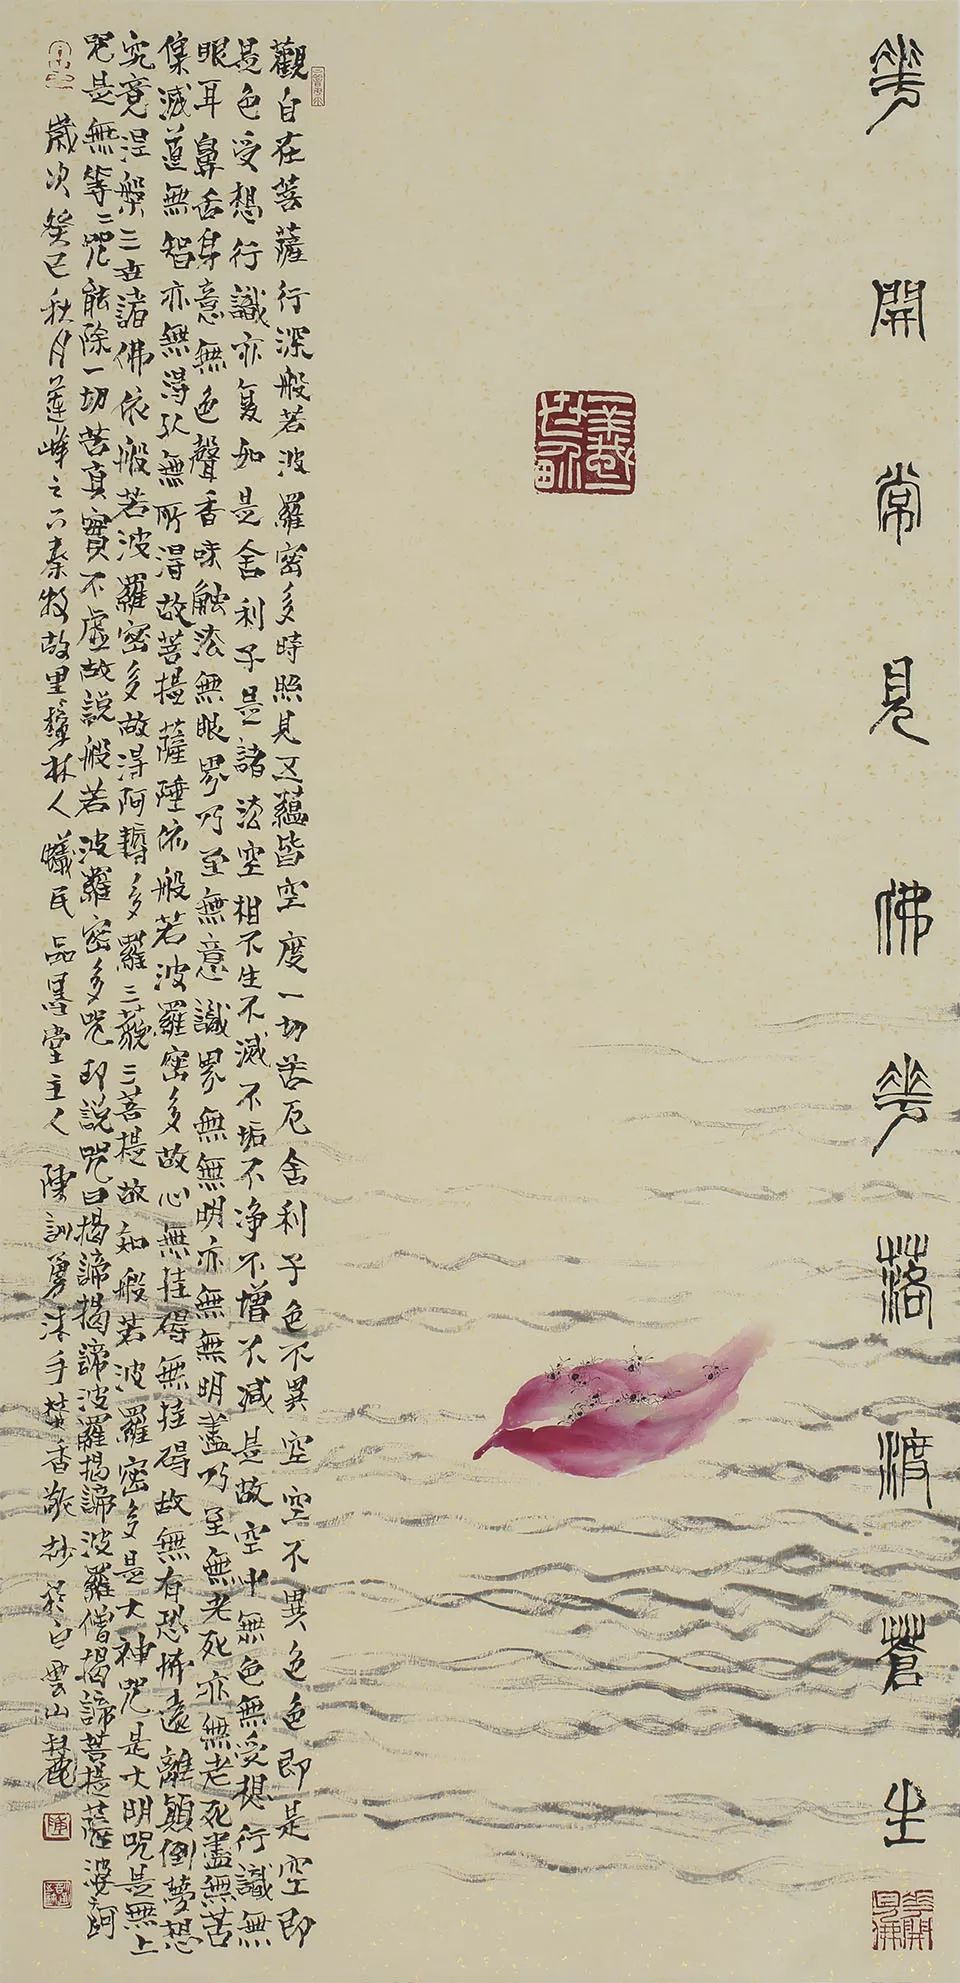 花開常見佛花落渡蒼生
觀自在菩薩行深般若波羅密多時照見五蘊皆空度一切苦厄舍利子色不異空空不異色色即是空即
是色受想行識亦复如是舍利子是諸法空相不生不滅不垢不净不增不減是故空中無色無受想行識無
眼耳鼻舌身意無色聲香味觸法無眼界乃至無意識界無無明亦無無明盡乃至無老死亦無老死盡無苦
集滅道無智亦無得以無所得故菩提薩埵依般若波羅密多故心無挂碍無挂碍故無有恐怖遠離顛倒夢想
究竟涅槃三世諸佛依般若波羅密多故得阿耨多羅三藐三菩提故知般若波羅密多是大神咒是大明咒是無上
咒是無等等咒能除一切苦真實不虛故說般若波羅密多咒即說咒曰揭諦揭諦波羅揭諦波羅僧揭諦菩提薩婆訶
歲次癸巳秋月蓮峰之下秦牧故里樟林人蟻民品墨堂主人陳訓勇沐手焚香敬抄於白雲山麓